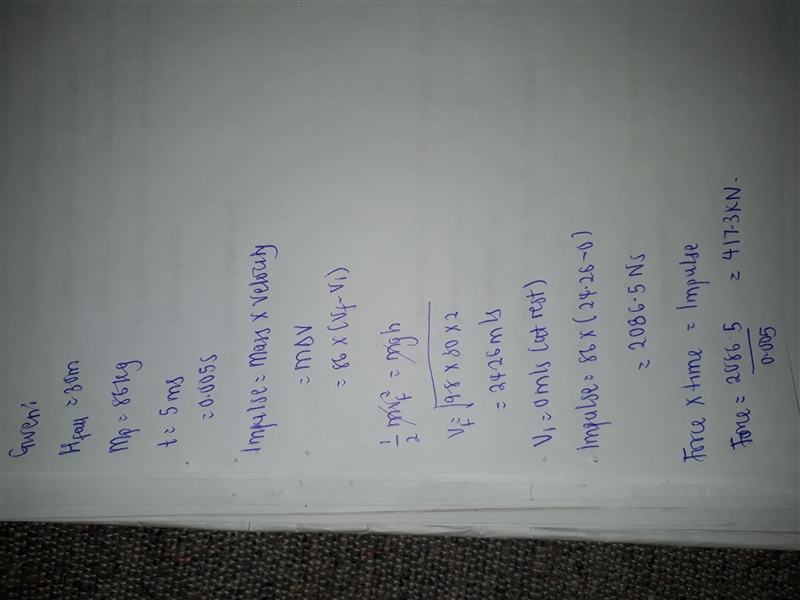 Given:
Hfall = 30m
Mp = 86kg
t = 5 ms
= 0.005s
Impulse = Mass x Velocity
= mΔV
= 86 x (Vf - Vi)
1/2 mVf² = mgh
Vf = √9.8 x 30 x 2
= 24.26 m/s
Vi = 0 m/s (at rest)
Impulse = 86 x (24.26 - 0)
= 2086.5 Ns
Force x time = Impulse
Force = 2086.5/0.005 = 417.3KN.